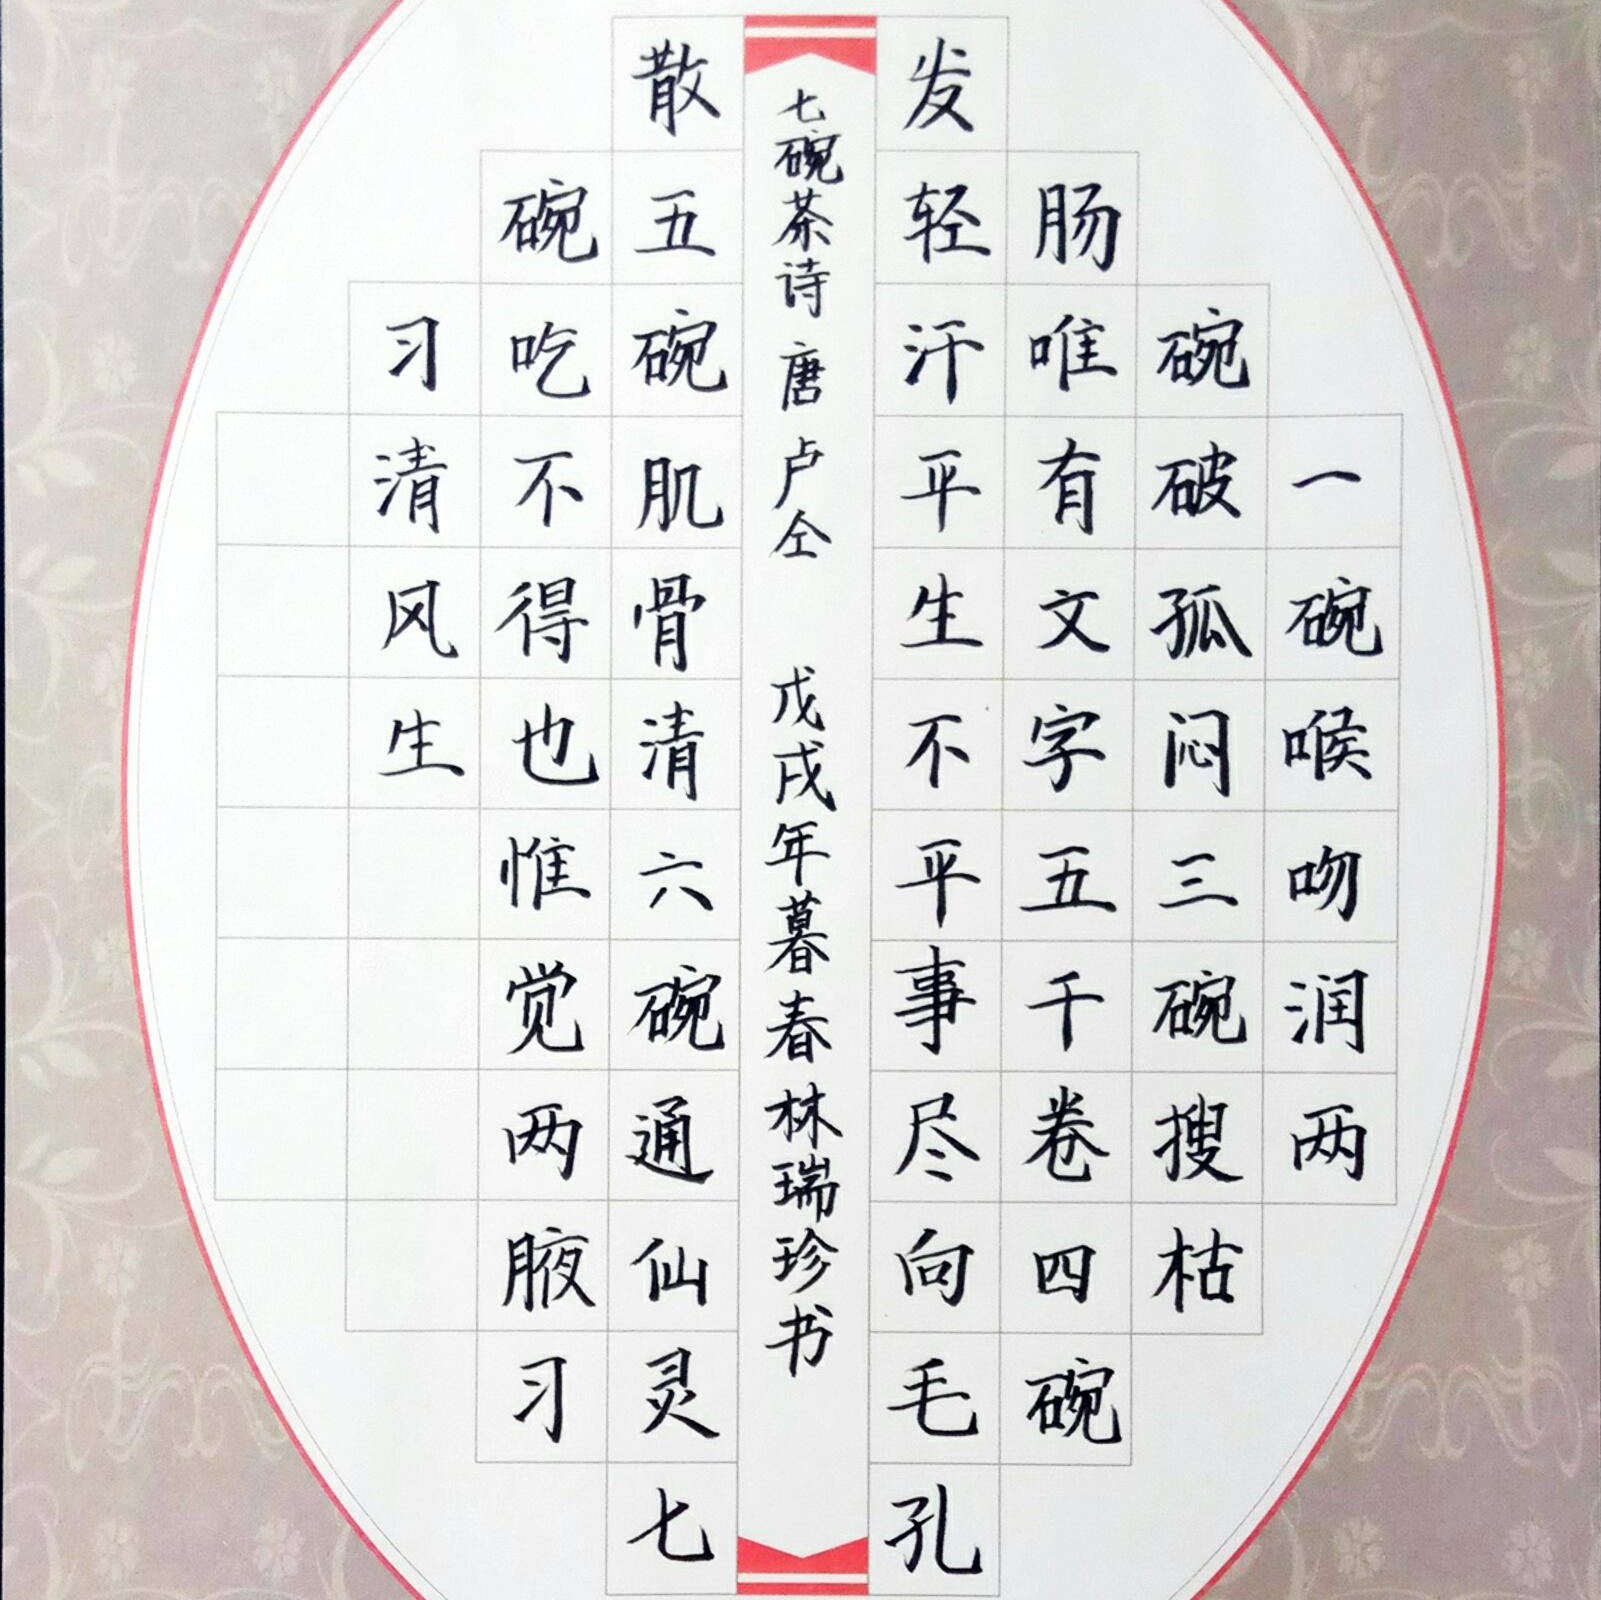 一碗喉吻润两
碗破孤闷三碗搜枯
肠唯有文字五千卷四碗
发轻汗平生不平事尽向毛孔
七碗茶诗 唐 卢仝 戊戌年暮春林瑞珍书
散五碗肌骨清六碗通仙灵七
碗吃不得也惟觉两腋习
习清风生